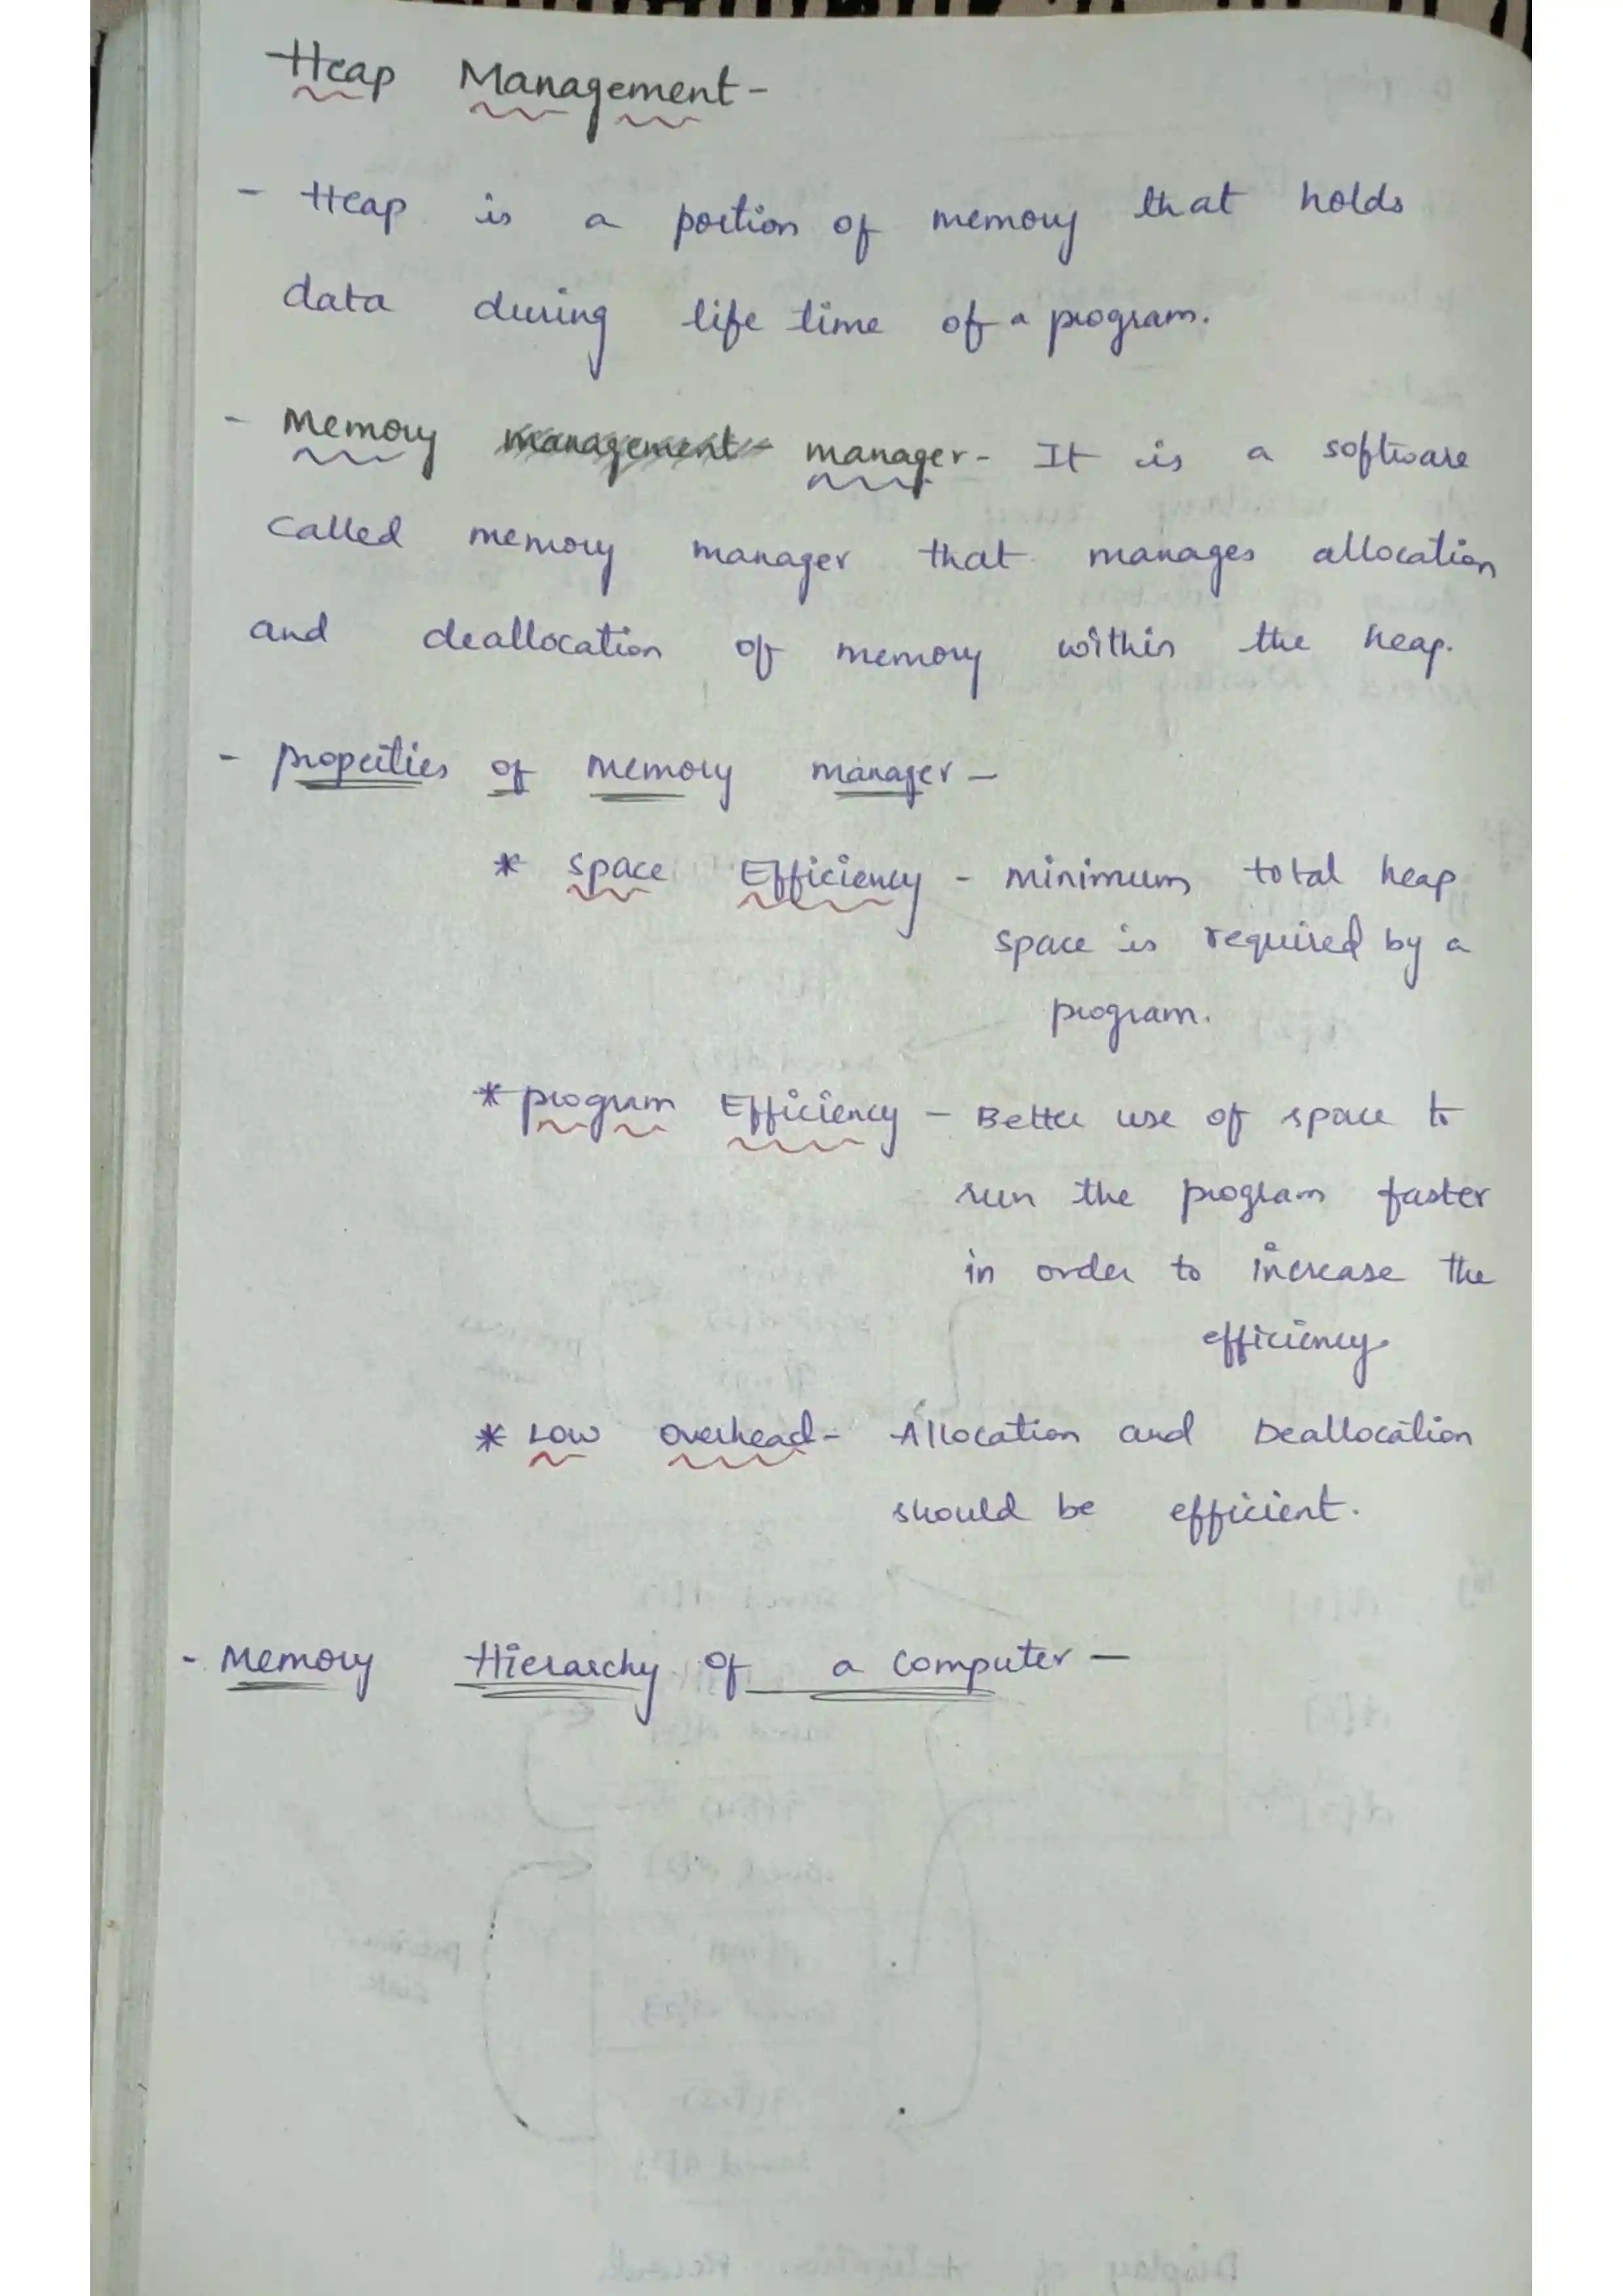 Heap Management-
- Heap is a portion of memory that holds
data during life time of a program.
- Memory management- manager- It is a software
called memory manager that manages allocation
and deallocation of memory within the heap.
- properties of memory manager-
* space Efficiency - minimum total heap
space is required by a
program.
* program Efficiency - Better use of space to
run the program faster
in order to increase the
efficiency.
* Low overhead- Allocation and Deallocation
should be efficient.
- Memory Hierarchy of a computer-